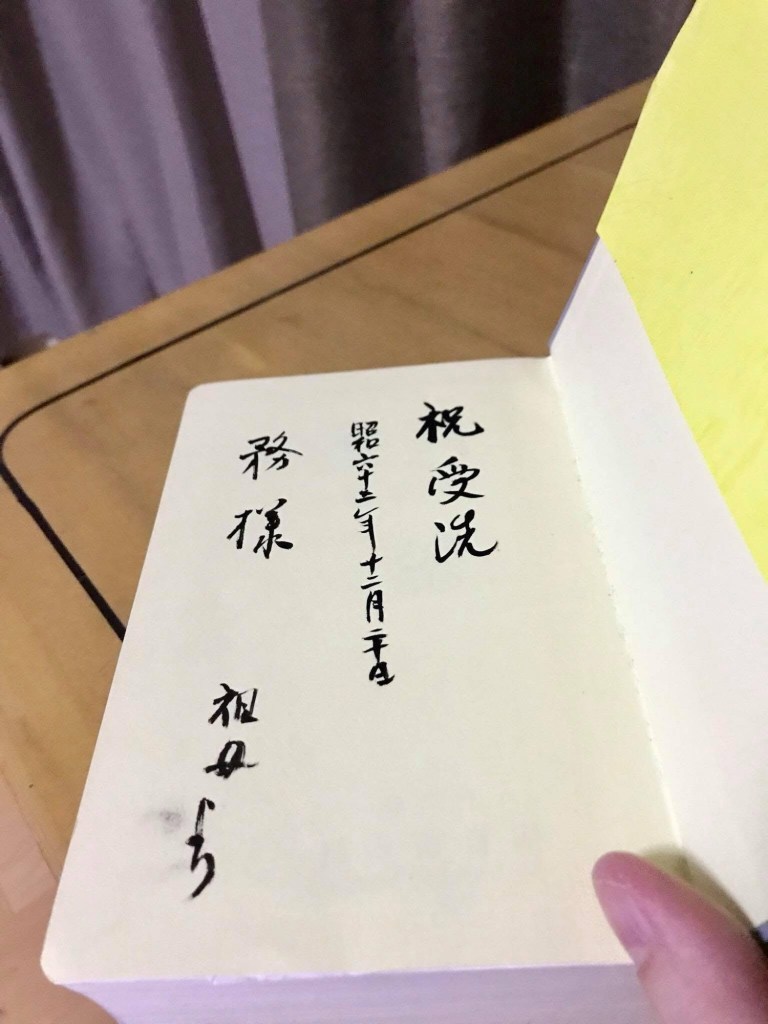 祝受洗
昭和六十二年十二月二十日
務様
祖母より